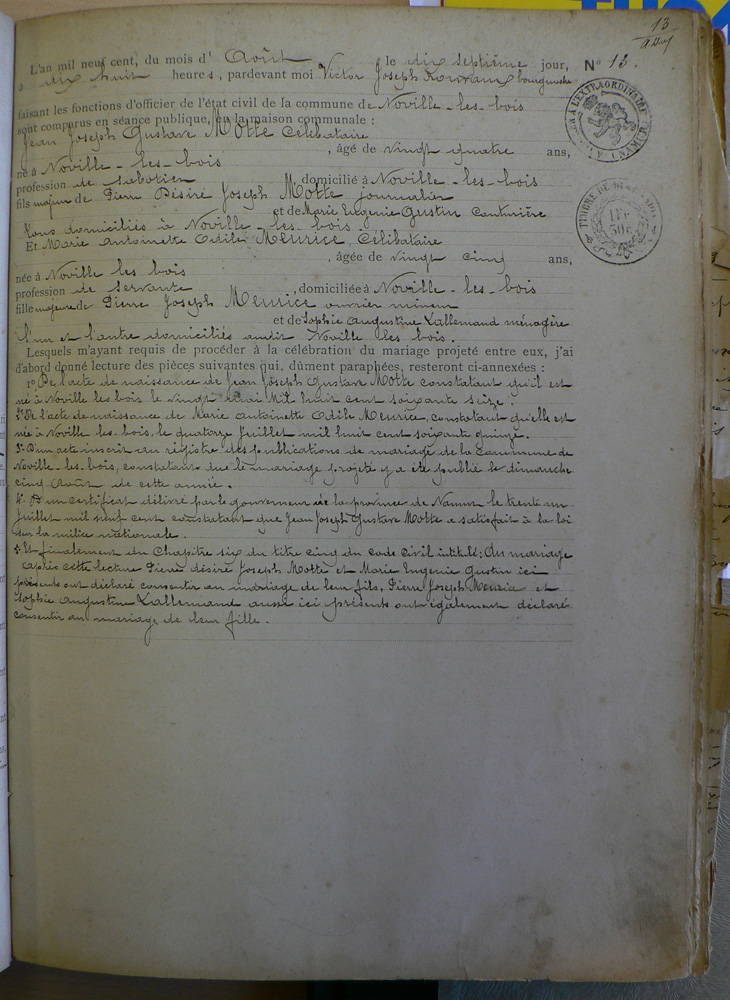 13
L'an mil neuf cent, du mois d' Août le dix septième jour, N° 13.
à dix huit heures, pardevant moi Victor Joseph bourgmestre
faisant les fonctions d'officier de l'état civil de la commune de Noville-les-bois
sont comparus en séance publique, en la maison communale :
Jean Joseph Gustave Motte Célibataire
, âgé de vingt quatre ans,
né à Noville-les-bois
profession de sabotier , domicilié à Noville-les-bois
fils majeur de Pierre Désiré Joseph Motte journalier
et de Marie Eugenie Gustin Couturière
tous domiciliés à Noville-les-bois.
Et Marie Antoinette Odile Meurice, Célibataire
, âgée de vingt cinq ans,
née à Noville les bois
profession de servante , domiciliée à Noville-les-bois
fille majeure de Pierre Joseph Meurice ouvrier mineur
et de Sophie Augustine Lallemand ménagère
l'un et l'autre domiciliés audit Noville les bois.
Lesquels m'ayant requis de procéder à la célébration du mariage projeté entre eux, j'ai
d'abord donné lecture des pièces suivantes qui, dûment paraphées, resteront ci-annexées :
1° De l'acte de naissance de Jean Joseph Gustave Motte constatant qu'il est
né à Noville les bois le vingt mil huit cent soixante seize.
2° De l'acte de naissance de Marie Antoinette Odile Meurice, constatant qu'elle est
née à Noville les-bois, le quatorze Juillet mil huit cent soixante quinze.
3° D'un acte inscrit au régistre des publications de mariage de la Commune de
Noville-les-bois, constatant que le mariage projeté y a été publié le dimanche
cinq Août de cette année.
4° D'un certificat délivré par le gouverneur de la province de Namur le trente un
Juillet mil neuf cent constatant que Jean Joseph Gustave Motte a satisfait à la loi
sur la milice nationale.
5° Et finalement du Chapitre six du titre cinq du code Civil intitulé: Du mariage
Après cette lecture Pierre désiré Joseph Motte et Marie Eugenie Gustin ici
présents ont déclaré consentir au mariage de leur fils, Pierre Joseph Meurice et
Sophie Augustine Lallemand aussi ici présents ont également déclaré
consentir au mariage de leur fille.